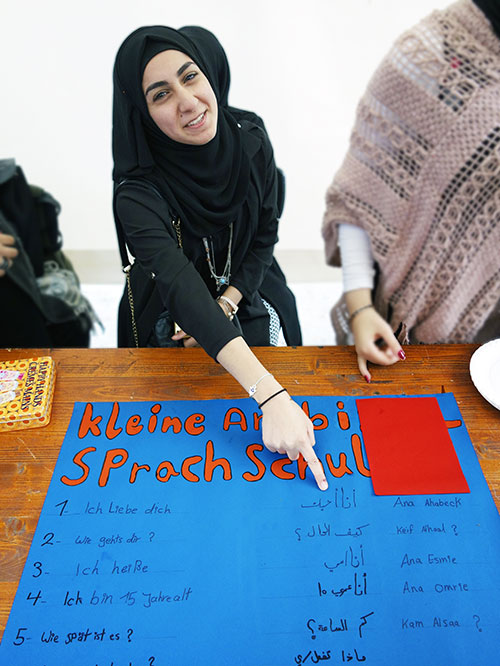 kleine Arabi -
Sprach Schul
1. Ich Liebe dich أنا أحبك Ana Ahabeck
2- Wie gehts dir ? كيف الحال ؟ Keif Alhaal ?
3- Ich heiße أنا اسمي Ana Esmie
4- Ich bin 15 Jahre alt أنا عمري ١٥ Ana Omrie
5- Wie spät ist es ? كم الساعة ؟ Kam Alsaa ?
ماذا